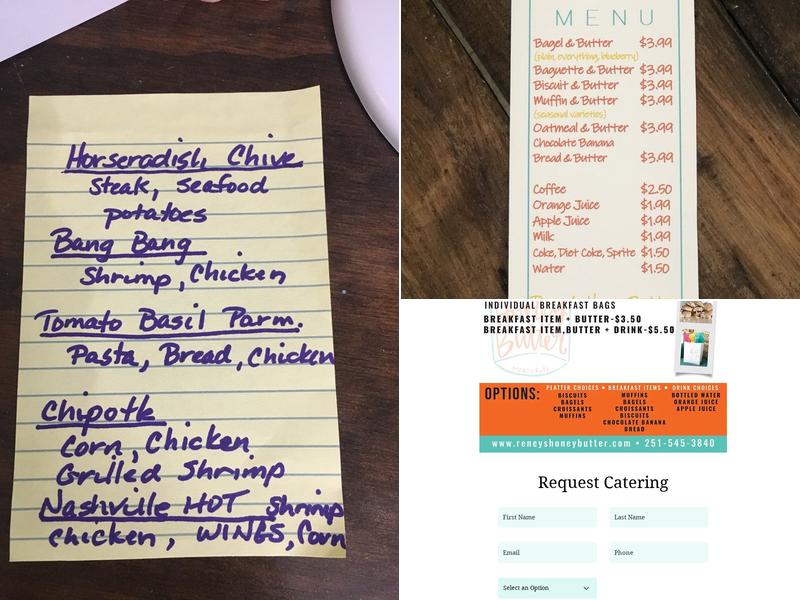 Horseradish Chive
Steak, seafood
potatoes
Bang Bang
Shrimp, Chicken
Tomato Basil Parm.
Pasta, Bread, Chicken
Chipotle
Corn, Chicken
Grilled Shrimp
Nashville HOT Shrimp
chicken, WINGS, Corn
MENU
Bagel & Butter $3.99
(plain, everything, blueberry)
Baguette & Butter $3.99
Biscuit & Butter $3.99
Muffin & Butter $3.99
(seasonal varieties)
Oatmeal & Butter $3.99
Chocolate Banana
Bread & Butter $3.99
Coffee $2.50
Orange Juice $1.99
Apple Juice $1.99
Milk $1.99
Coke, Diet Coke, Sprite $1.50
Water $1.50
INDIVIDUAL BREAKFAST BAGS
BREAKFAST ITEM + BUTTER-$3.50
BREAKFAST ITEM,BUTTER + DRINK-$5.50
Butter
OPTIONS:
PLATTER CHOICES • BREAKFAST ITEMS • DRINK CHOICES
BISCUITS MUFFINS BOTTLED WATER
BAGELS BAGELS ORANGE JUICE
CROISSANTS CROISSANTS APPLE JUICE
MUFFINS BISCUITS
CHOCOLATE BANANA
BREAD
www.reneyshoneybutter.com • 251-545-3840
Request Catering
First Name Last Name
Email Phone
Select an Option